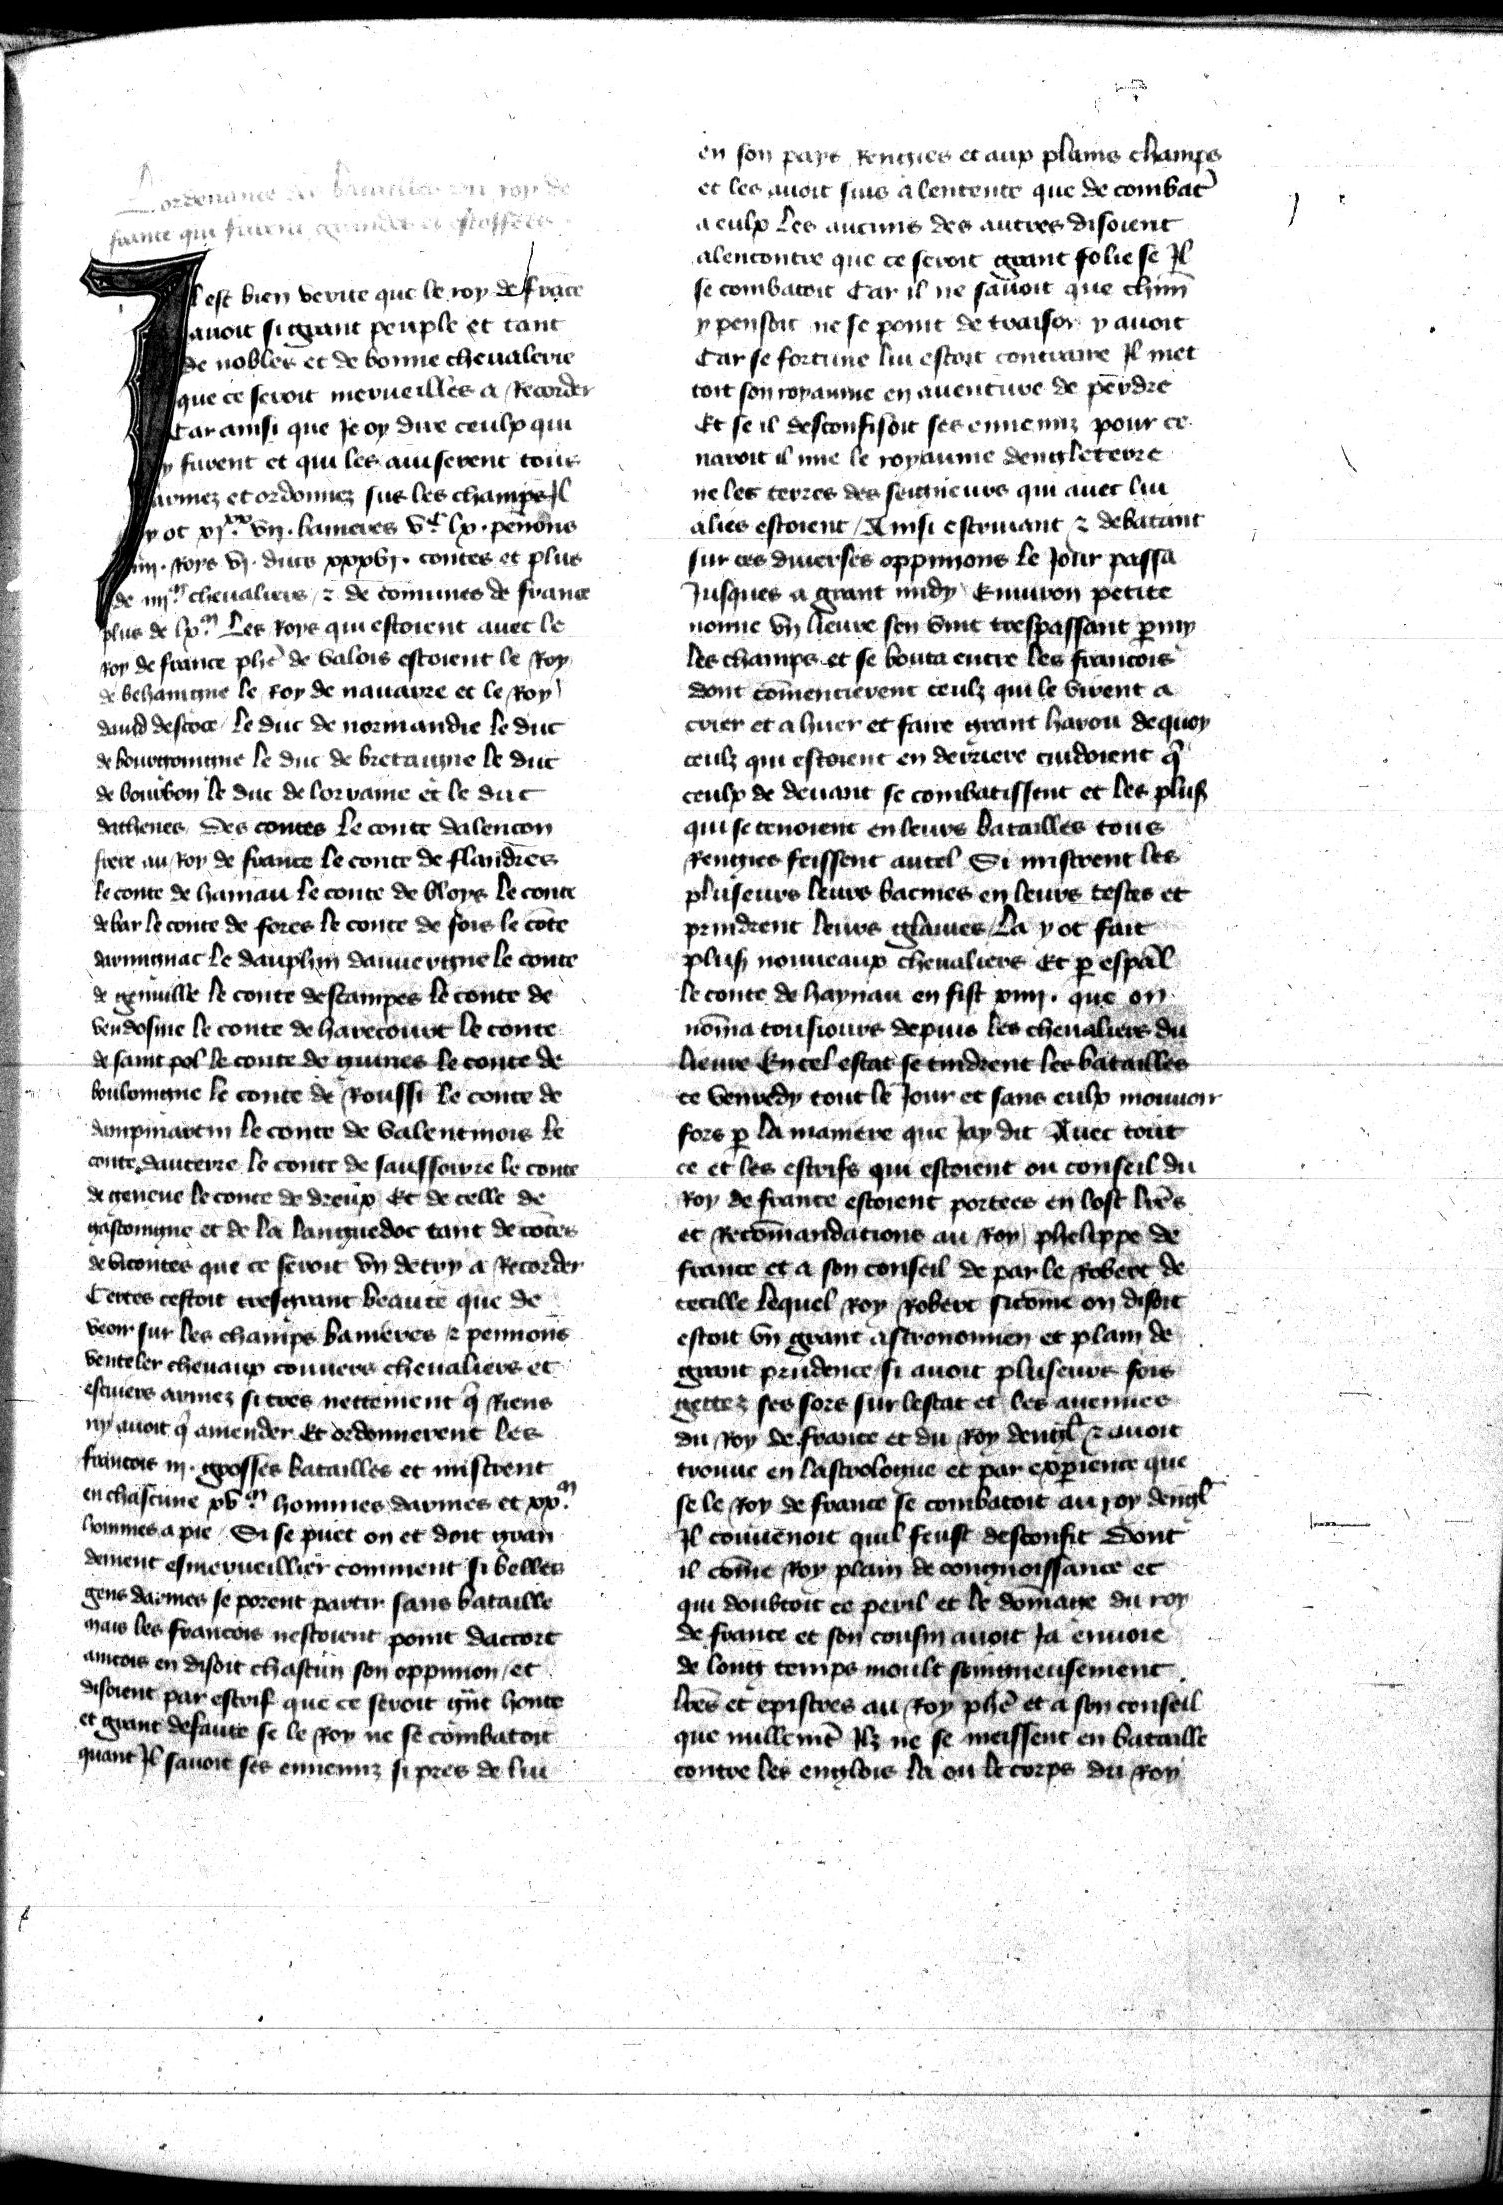 Lordenance des batailles du roy de
france qui furent grandes et estoffees
Il est bien verite que le roy de frāce
auoit si grant peuple et tant
de nobles et de bonne cheualerie
que ce seroit merueilles a Recorder
Car ainsi que Je oy dire ceulx qui
y furent et qui les auiserent tous
armez et ordonnez sus les champs Il
y ot xj.xx vij. banieres v.c lx. penōns
iiij. Roys vj. ducs xxxvj. contes et plus
de iiij.m cheualiers ⁊ de cōmunes de france
plus de lx.m Les Roys qui estoient auec le
Roy de france phē de valois estoient le Roy
de behaingne le Roy de nauarre et le Roy
dauid descoce le duc de normandie le duc
de bourgoingne le duc de bretaigne le duc
de bourbon le duc de lorraine et le duc
dathenes Des contes Le conte dalencon
frere au Roy de france le conte de flandres
le conte de hainau le conte de bloys le conte
de bar le conte de fores le conte de fois le cōte
darmignac le dauphin dauuergne le conte
de genuille le conte destampes le conte de
vendosme le conte de harecourt le conte
de saint pol le conte de guines le conte de
boulongne le conte de Roussi le conte de
dampmartin le conte de valentinois le
conte dauterre le conte de saussoirre le conte
de geneue le conte de dreux Et de celle de
gascoingne et de la languedoc tant de cōtes
de vicontes que ce seroit vn detry a Recorder
Certes cestoit tresgrant beaute que de
veoir sur les champs banieres ⁊ pennons
venteler cheuaux couuers cheualiers et
escuiers armez si tres nettement q̄ Riens
ny auoit q̄ amender Et ordonnerent les
francois iij. grosses batailles et mistrent
en chascune xv.m hommes darmes et xx.m
hommes a pie Si se puet on et doit gran
dement esmerueillier comment si belles
gens darmes se porent partir sans bataille
mais les francois nestoient point daccort
aincois en disoit chascun son oppinion et
disoient par estrif que ce seroit gnt honte
et grant defaute se le Roy ne se combatoit
quant Il sauoit ses ennemiz si pres de lui
en son pays Rengies et aux plains champs
et les auoit suis a lentente que de combat̄
a eulx Les aucuns des autres disoient
alencontre que ce seroit grant folie se Il
se combatoit Car il ne sauoit que chūn
y pensoit ne se point de traison y auoit
Car se fortune lui estoit contraire Il met
toit son royaume en auenture de perdre
Et se il desconfisoit ses ennemiz pour ce
naroit il mie le royaume dengleterre
ne les terres des seigneurs qui auec lui
alies estoient Ainsi estriuant ⁊ debatant
sur ces diuerses oppinions le Jour passa
Jusques a grant midy Enuiron petite
nonne vn lieure sen vint trespassant p̄my
les champs et se bouta entre les francois
dont cōmencierent ceulz qui le virent a
crier et a huer et faire grant harou dequoy
ceulz qui estoient en derriere cuidoient q̄
ceulx de deuant se combatissent et les plus̄
qui se tenoient en leurs batailles tous
Rengies feissent autel Si mistrent les
pluseurs leurs bacines en leurs testes et
prindrent leurs glaiues La y ot fait
plus̄ nouueaux cheualiers Et p̄ espāl
le conte de haynau en fist xiiij. que on
nōma tousiours depuis les cheualiers du
lieure En cel estat se tindrent les batailles
ce venredy tout le Jour et sans eulx mouuoir
fors p̄ la maniere que Jay dit Auec tout
ce et les estrifs qui estoient ou conseil du
Roy de france estoient portees en lost lr̄es
et Recōmandations au Roy phelippe de
france et a son conseil de par le Robert de
cecille lequel Roy Robert sicōme on disoit
estoit vn grant astronomien et plain de
grant prudence si auoit pluseurs fois
gettez ses sors sur lestat et les auenues
du Roy de france et du Roy dengl̄ ⁊ auoit
trouue en lastrologue et par exp̄ience que
se le Roy de france se combatoit au roy dengl̄
Il couuenoit quil feust desconfit Dont
il cōme Roy plain de congnoissance et
qui doubtoit ce peril et le dōmage du roy
de france et son cousin auoit Ja enuoie
de long temps moult songneusement
lr̄es et epistres au Roy phē et a son conseil
que nullemt̄ Ilz ne se meissent en bataille
contre les englois la ou le corps du Roy